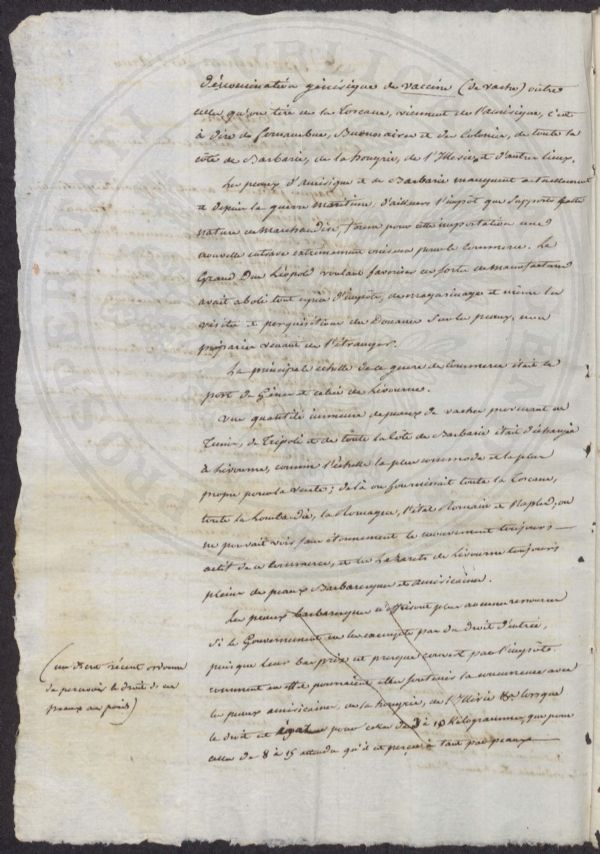 dénomination générique de vaccine (de vache) outre
celles qu'on tire de la Toscane, viennent de l'amérique, c'est
à dire de Fernambuc, Buenosaires et du Colonia, de toute la
côte de Barbarie, de la hongrie, de l'Illirie et d'autres lieux.
Les peaux d'Amérique et de Barbarie manquent actuellement
et depuis la guerre maritime. d'ailleurs l'impôt que supporte cette
nature de Marchandise, forme pour cette importation une
nouvelle entrave extrêmement onéreuse pour le Commerce. Le
Grand Duc Léopold voulant favoriser ces sortes de manufactures
avait aboli tout espèce d'impôts, de magasinage et même la
visite et perquisition de Douane sur les peaux, non
préparées venant de l'étranger.
La principale échelle de ce genre de Commerce était le
port de Gênes et celui de Livourne.
Une quantité immense de peaux de vaches provenant de
Tunis, de Tripoli et de toute la Côte de Barbarie était échangée
à Livourne, comme l'échelle la plus commode et la plus
propre pour la vente; de là on fournissait toute la Toscane,
toute la Lombardie, la Romagne, l'état Romain et Naples, on
ne pouvait voir sans étonnement le mouvement toujours
actif de ce Commerce, et les Lazarets de Livourne toujours
pleins de peaux Barbaresques et américaines.
Les peaux barbaresques n'offrent plus aucune ressource
si le Gouvernement ne les exempte pas du droit d'entrée,
puisque leur bas prix est presque couvert par l'impôt.
comment en effet pourraient elles soutenir la concurrence avec
les peaux américaines, de la hongrie, de l'Illirie lorsque
le droit est égal pour celles de 3 à 10 kilogrammes, que pour
celles de 8 à 15 attendu qu'il est perçu à tant par peaux
(un décret récent ordonne
de percevoir le droit de ces
peaux au poids)